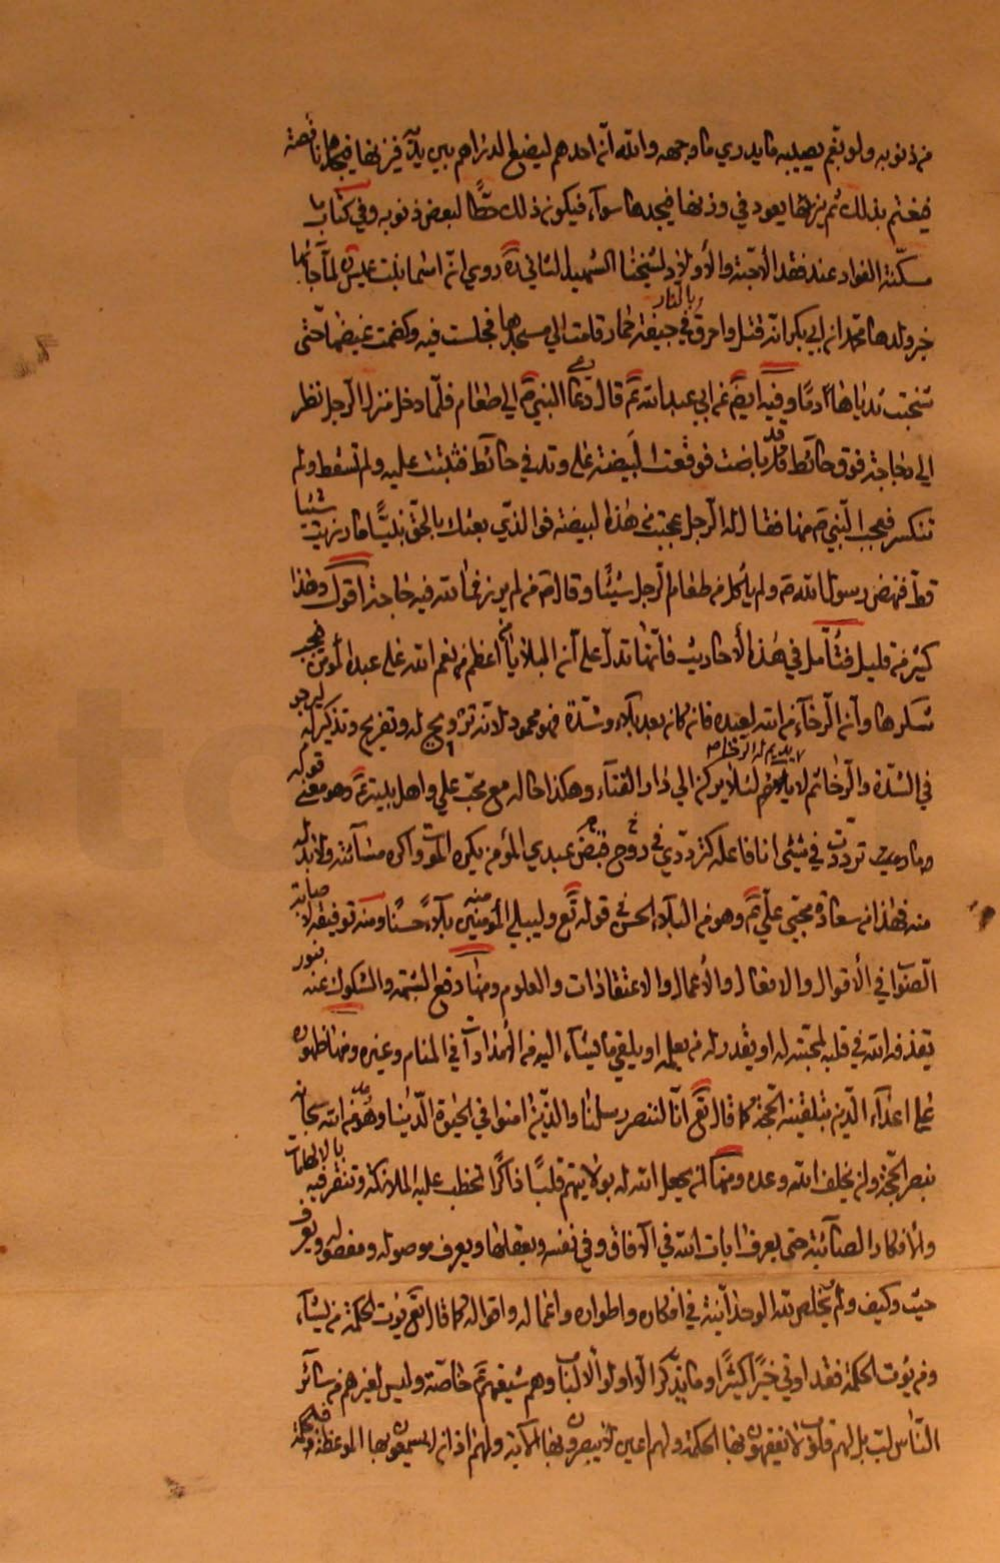 من ذنوبه ولو بغم يصيبه ما يدري ما وجهه والله ان احدهم ليضع الدراهم بين يديه فيزنها فيجدها ناقصة
فيغتم بذلك ثم يزنها يعود في وزنها فيجدها سواء فيكون ذلك حطّا لبعض ذنوبه وفي كتاب
مسكّنة الفواد عند فقد الاحبّة والأولاد لشيخنا الشهيد الثاني ره روي انّ اسما بنت عميس ره لمّا جائها
خبر ولدها محمّد بن ابي بكر انّه قتل واحرق بالنار في جيفة حمار قامت الي مسجدها فجلست فيه وكظمت غيضها حتّى
شخبت ثدياها دمًا وفيه ايضًا عن ابي عبد الله عم قال دعي النبي ص الي طعام فلمّا دخل منزل الرجل نظر
الي دجاجة فوق حائط قد باضت فوقعت البيضة على وتد في حائط فثبتت عليه ولم تسقط ولم
تنكسر فعجب النّبي ص منها فقال له الرجل عجبت من هذه البيضة فوالذي بعثك بالحق نبيًّا ما رزيت شيئا
قطّ فنهض رسول الله ص ولم ياكل من طعام الرجل شيئًا وقال ص من لم يرزء فما لله فيه حاجة اقول وهذا
كثير منه قليل فتأمل في هذه الأحاديث فانّها تدلّ على أن البلايا اعظم من نعم الله على عبده المؤمن فيجب
شكرها وأن الرخآء من الله لعبده فان كان بعد بلاء وشدّة فهو محمود لانه ترويح له وتفريج وتذكير له ليرجو
في الشدّة والرخا ثم لا يديم له الرخاء لئلا يركن الي دار الفناء وهكذا حاله مع محبّ علي واهل بيته عم وهو معنى قوله
ما تردّدت في شيئ انا فاعله كتردّدي في قبض روح عبدي المؤمن يكره الموت واكره مسآئته ولا بدّ له
منه فهذا من سعادة محبّي علّي عم وهو من البلاء الحسن في قوله تع وليبلي المؤمنين منه بلآءً حسنًا ومنه توفيقه لاصابة
الصّواب في الأقوال والافعال والأعمال والاعتقادات والعلوم ومنها دفع الشبهة والشكوك عنه بنور
يقذفه الله في قلبه لمحبّته له او يقدر له من يعلمه او يلقي ما يشآء اليه من الالهامات في المنام وغيره ومنها ظهوره
على اعدآء الّدين بتلقينه الحّجة كما قال تع انّا لننصر رسلنا والذّين امنوا في الحيوة الّدنيا وهو عدة من الله سبحانه
بنصر الحّجة ولن يخلف الله وعده ومنها ان يجعل الله له بولايتهم قلبًا ذاكرًا تخطب عليه الملائكة وتنقر فيه بالالهامات
والأفكار الصائبة حتى يعرف ايات الله في الآفاق وفي نفسه ويعقلها ويعرف موصوله ومفصوله ويعرف
حيث وكيف ولم يخلص لله الوحدانية في افكاره واطواره واعماله واقواله كما قال تع يؤت الحكمة من يشآء
ومن يؤت الحكمة فقد اوتي خيرًا كثيرًا وما يذّكر الّا اولو الألباب وهم شيعتهم عم خاصّة وليس لغيرهم من سآئر
النّاس لبّ بل لهم قلوب لا يفقهون بها الحكمة ولهم اعين لا يبصرون بها الآية ولهم اذان لا يسمعون بها الموعظة